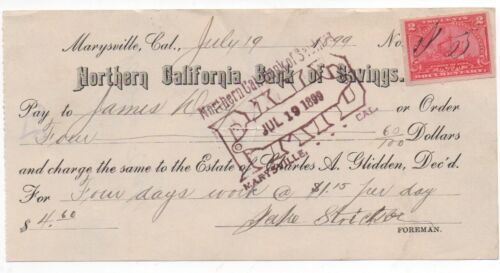 Marysville, Cal., July 19 1899 No.
TWO CENTS
2 2
DOCUMENTARY
Northern California Bank of Savings.
Northern Cal. Bank of Savings
PAID
JUL 19 1899
PAID
MARYSVILLE, CAL.
Pay to James or Order
Four 60/100 Dollars
and charge the same to the Estate of Charles A. Glidden, Dec'd.
For Four days work @ $1.15 per day
$4.60 Jake
FOREMAN.